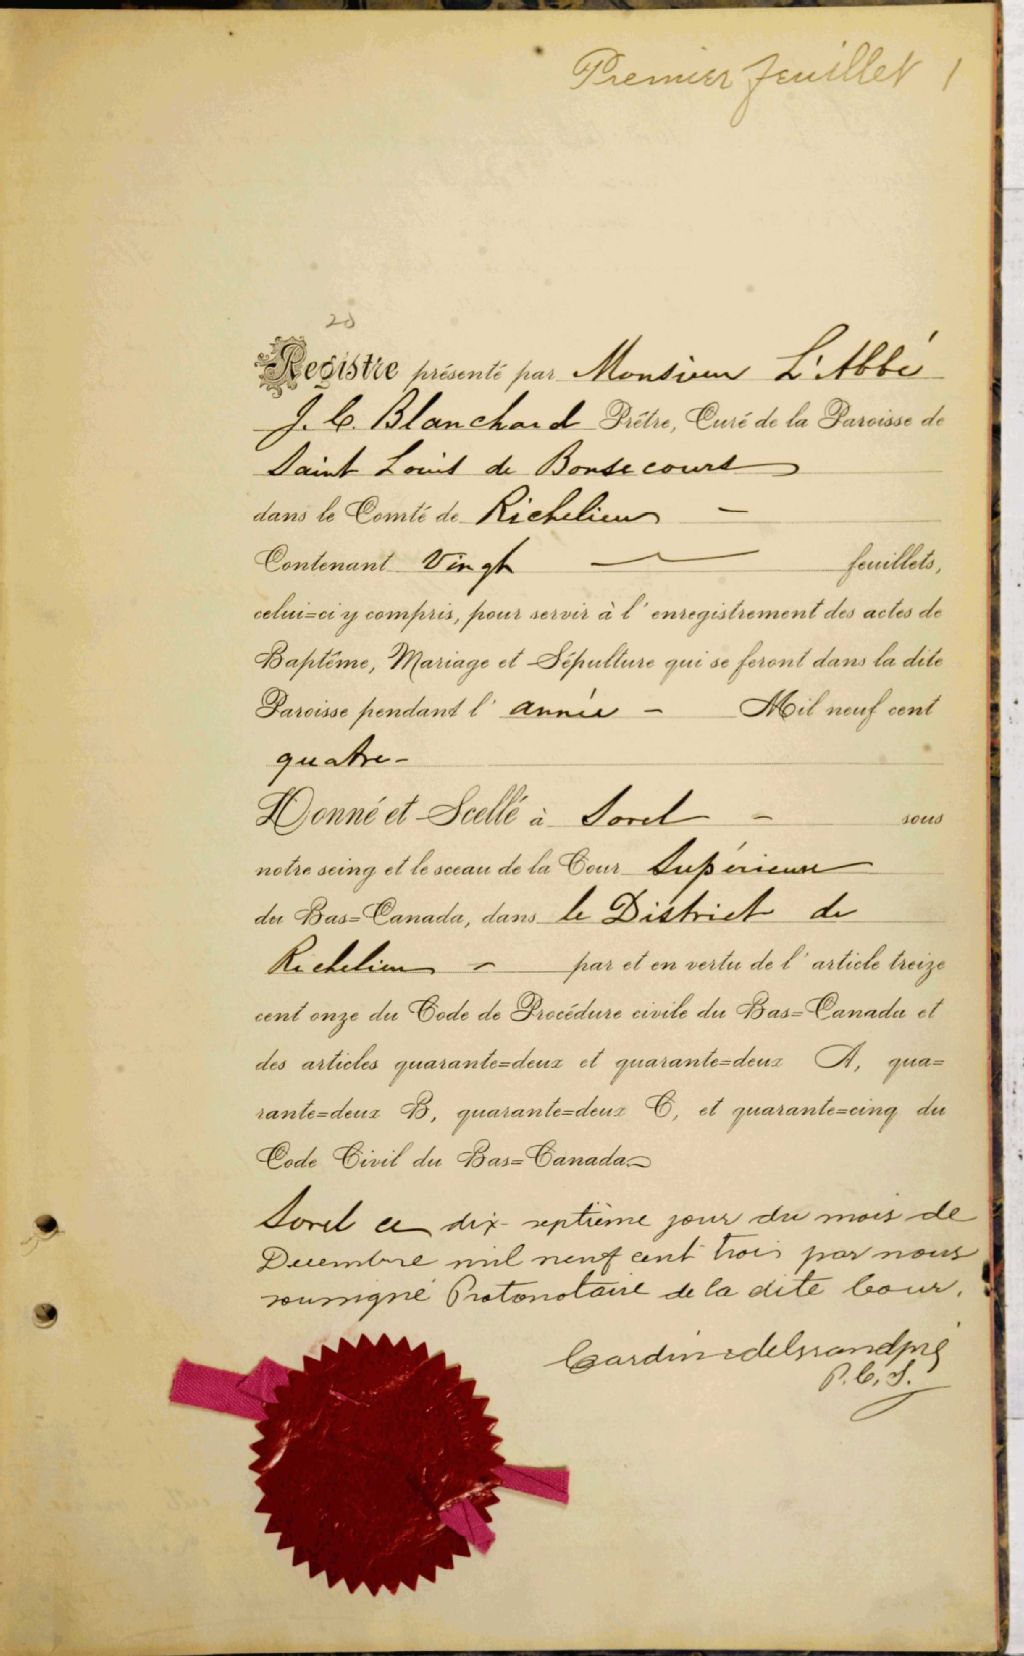 Premier feuillet 1
20
Registre présenté par Monsieur L'Abbé
J. C. Blanchard Prêtre, Curé de la Paroisse de
Saint Louis de Bonsecours
dans le Comté de Richelieu -
Contenant Vingt feuillets,
celui=ci y compris, pour servir à l'enregistrement des actes de
Baptême, Mariage et Sépulture qui se feront dans la dite
Paroisse pendant l'année - Mil neuf cent
quatre -
Donné et Scellé à Sorel - sous
notre seing et le sceau de la Cour Supérieure
du Bas=Canada, dans le District de
Richelieu - par et en vertu de l'article treize
cent onze du Code de Procédure civile du Bas=Canada et
des articles quarante=deux et quarante=deux A, qua=
rante=deux B, quarante=deux C, et quarante=cinq du
Code Civil du Bas=Canada.
Sorel ce dix-septième jour du mois de
Decembre mil neuf cent trois par nous
soussigné Protonotaire de la dite Cour.
Cardin & delGrandpré
P. C. S.